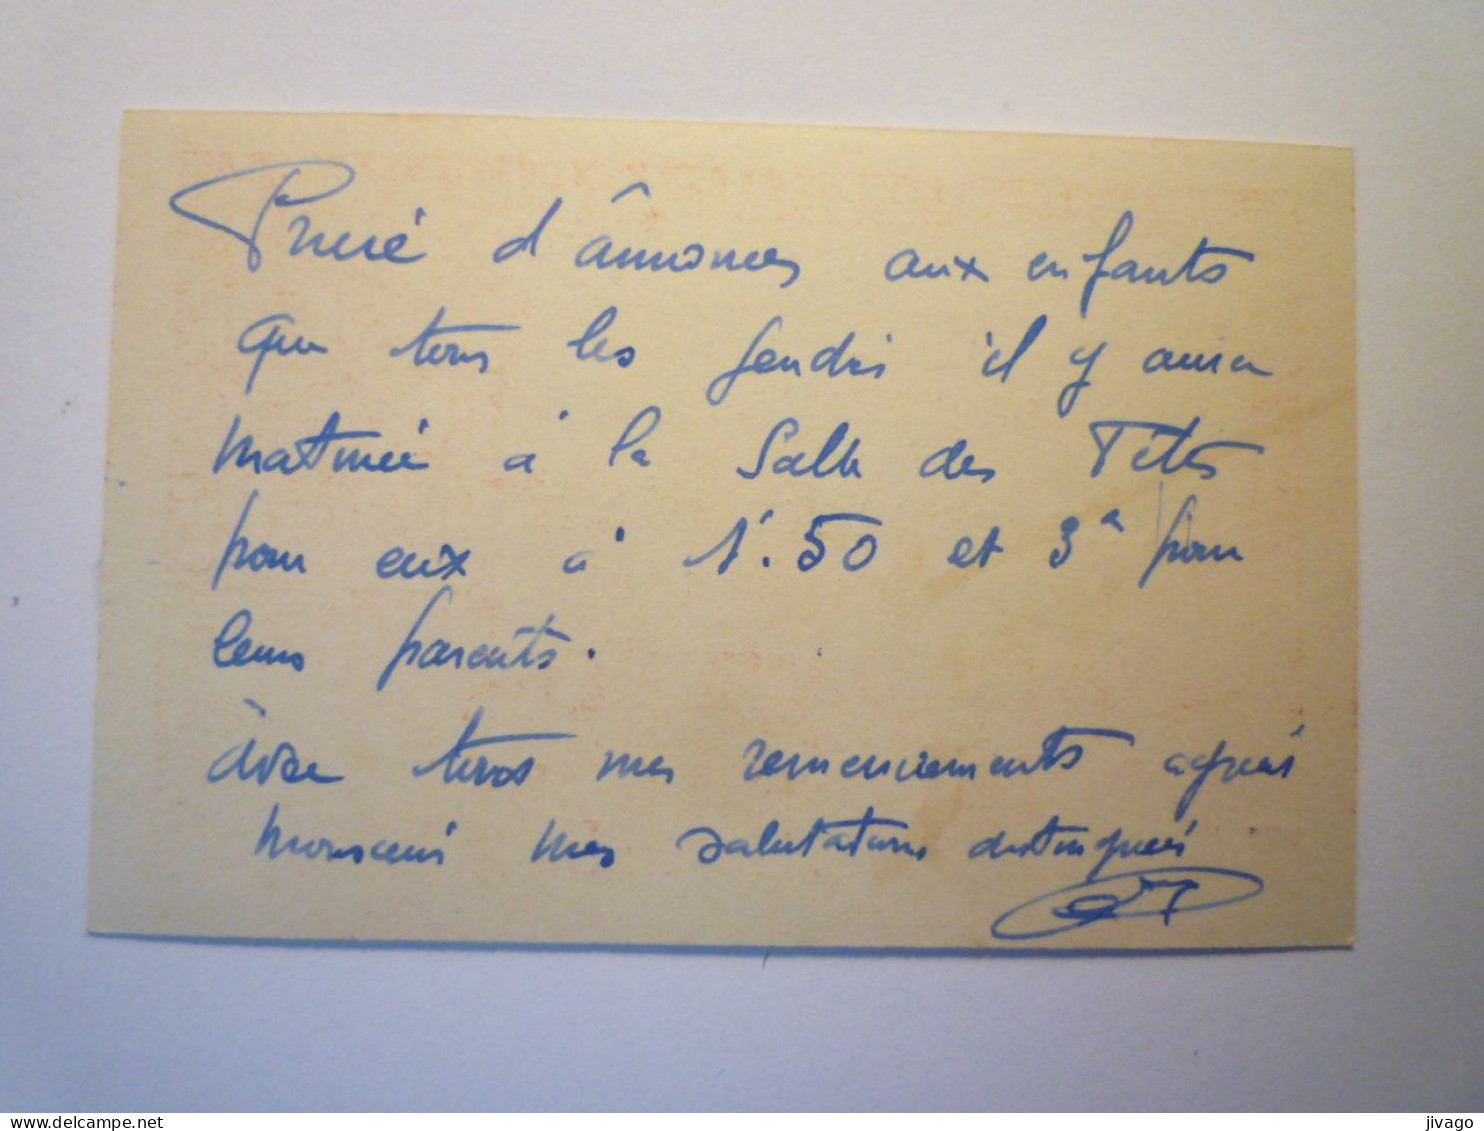 Prière d'annoncer aux enfants
que tous les Jeudis il y aura
matinée à la Salle des Fêtes
pour eux à 1f.50 et 3f pour
leurs parents.
Avec tous mes remerciements agréez
Monsieur mes salutations distinguées
delcampe.net
jivago